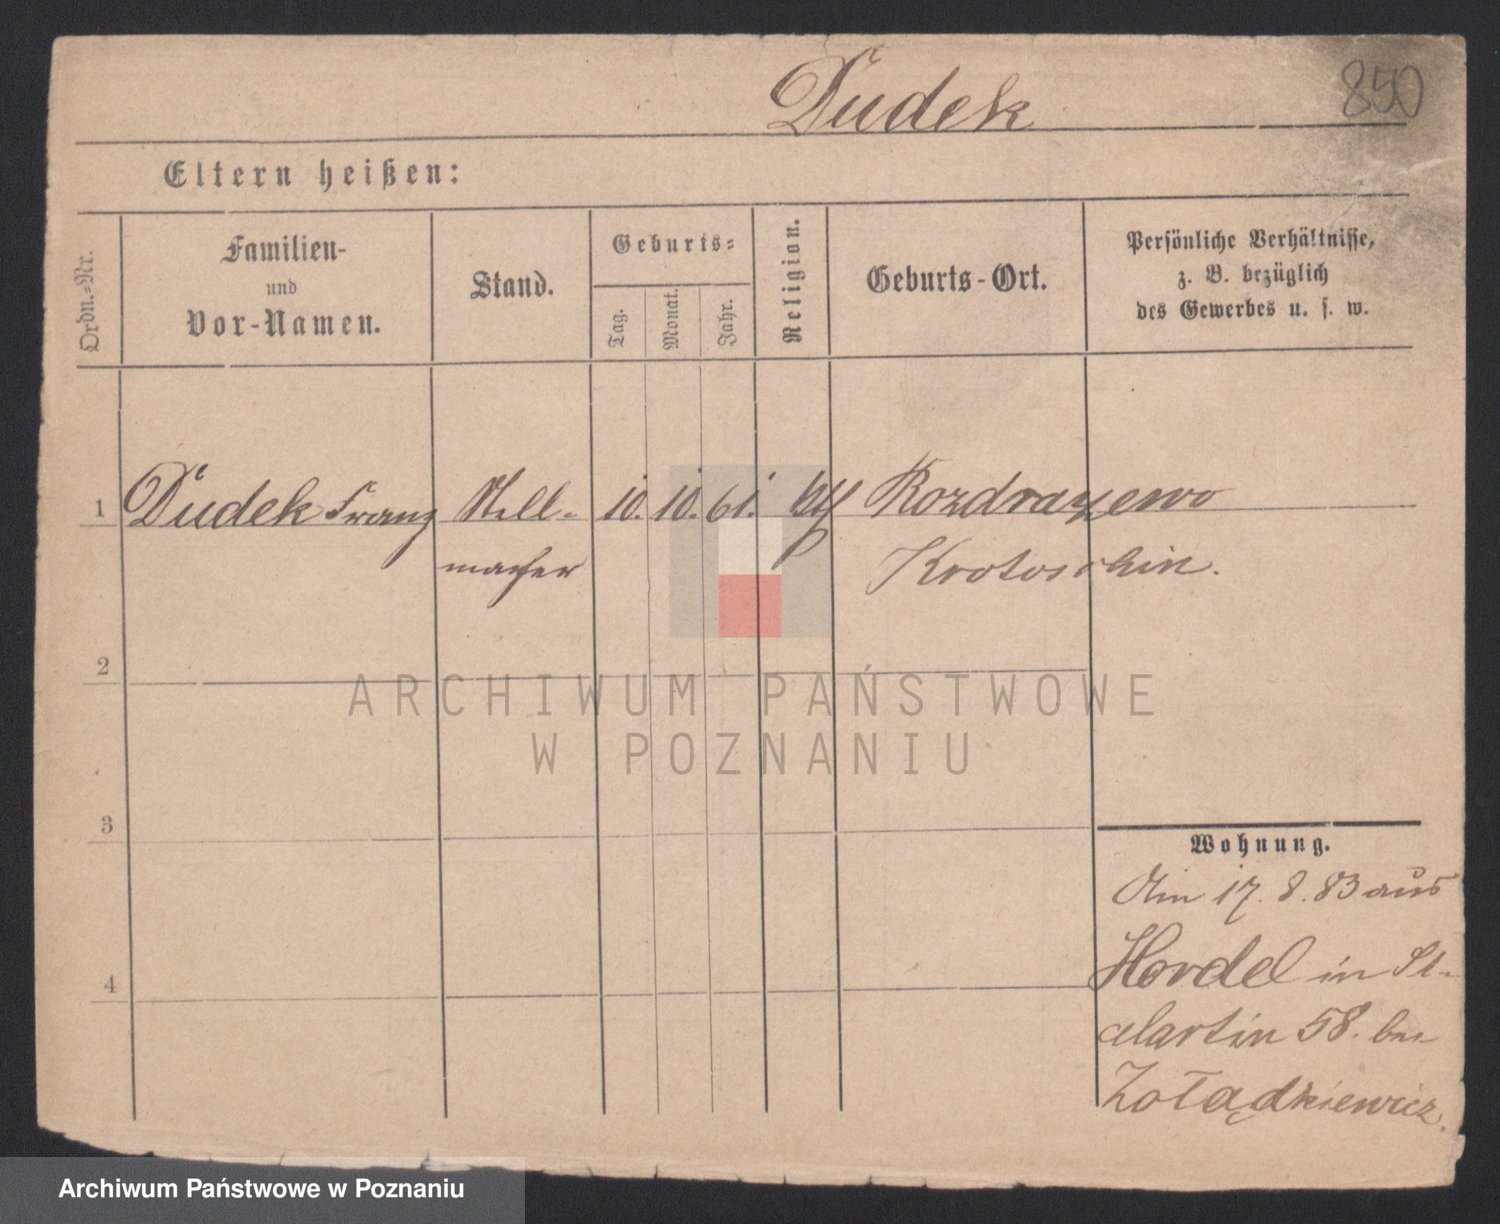 Dudek
850
Eltern heißen:
Ordn.=Nr.
Familien-
und
Vor-Namen.
Stand.
Geburts=
Tag.
Monat.
Jahr.
Religion.
Geburts-Ort.
Persönliche Verhältnisse,
z. B. bezüglich
des Gewerbes u. s. w.
1 Dudek Franz Stell- 10. 10. 61. kth Rozdrazewo
macher Krotoschin.
2
ARCHIWUM PAŃSTWOWE
W POZNANIU
3
Wohnung.
Am 17. 8. 83 aus
Hordel in St.
4
Martin 58. bei
Żołądkiewicz.
Archiwum Państwowe w Poznaniu